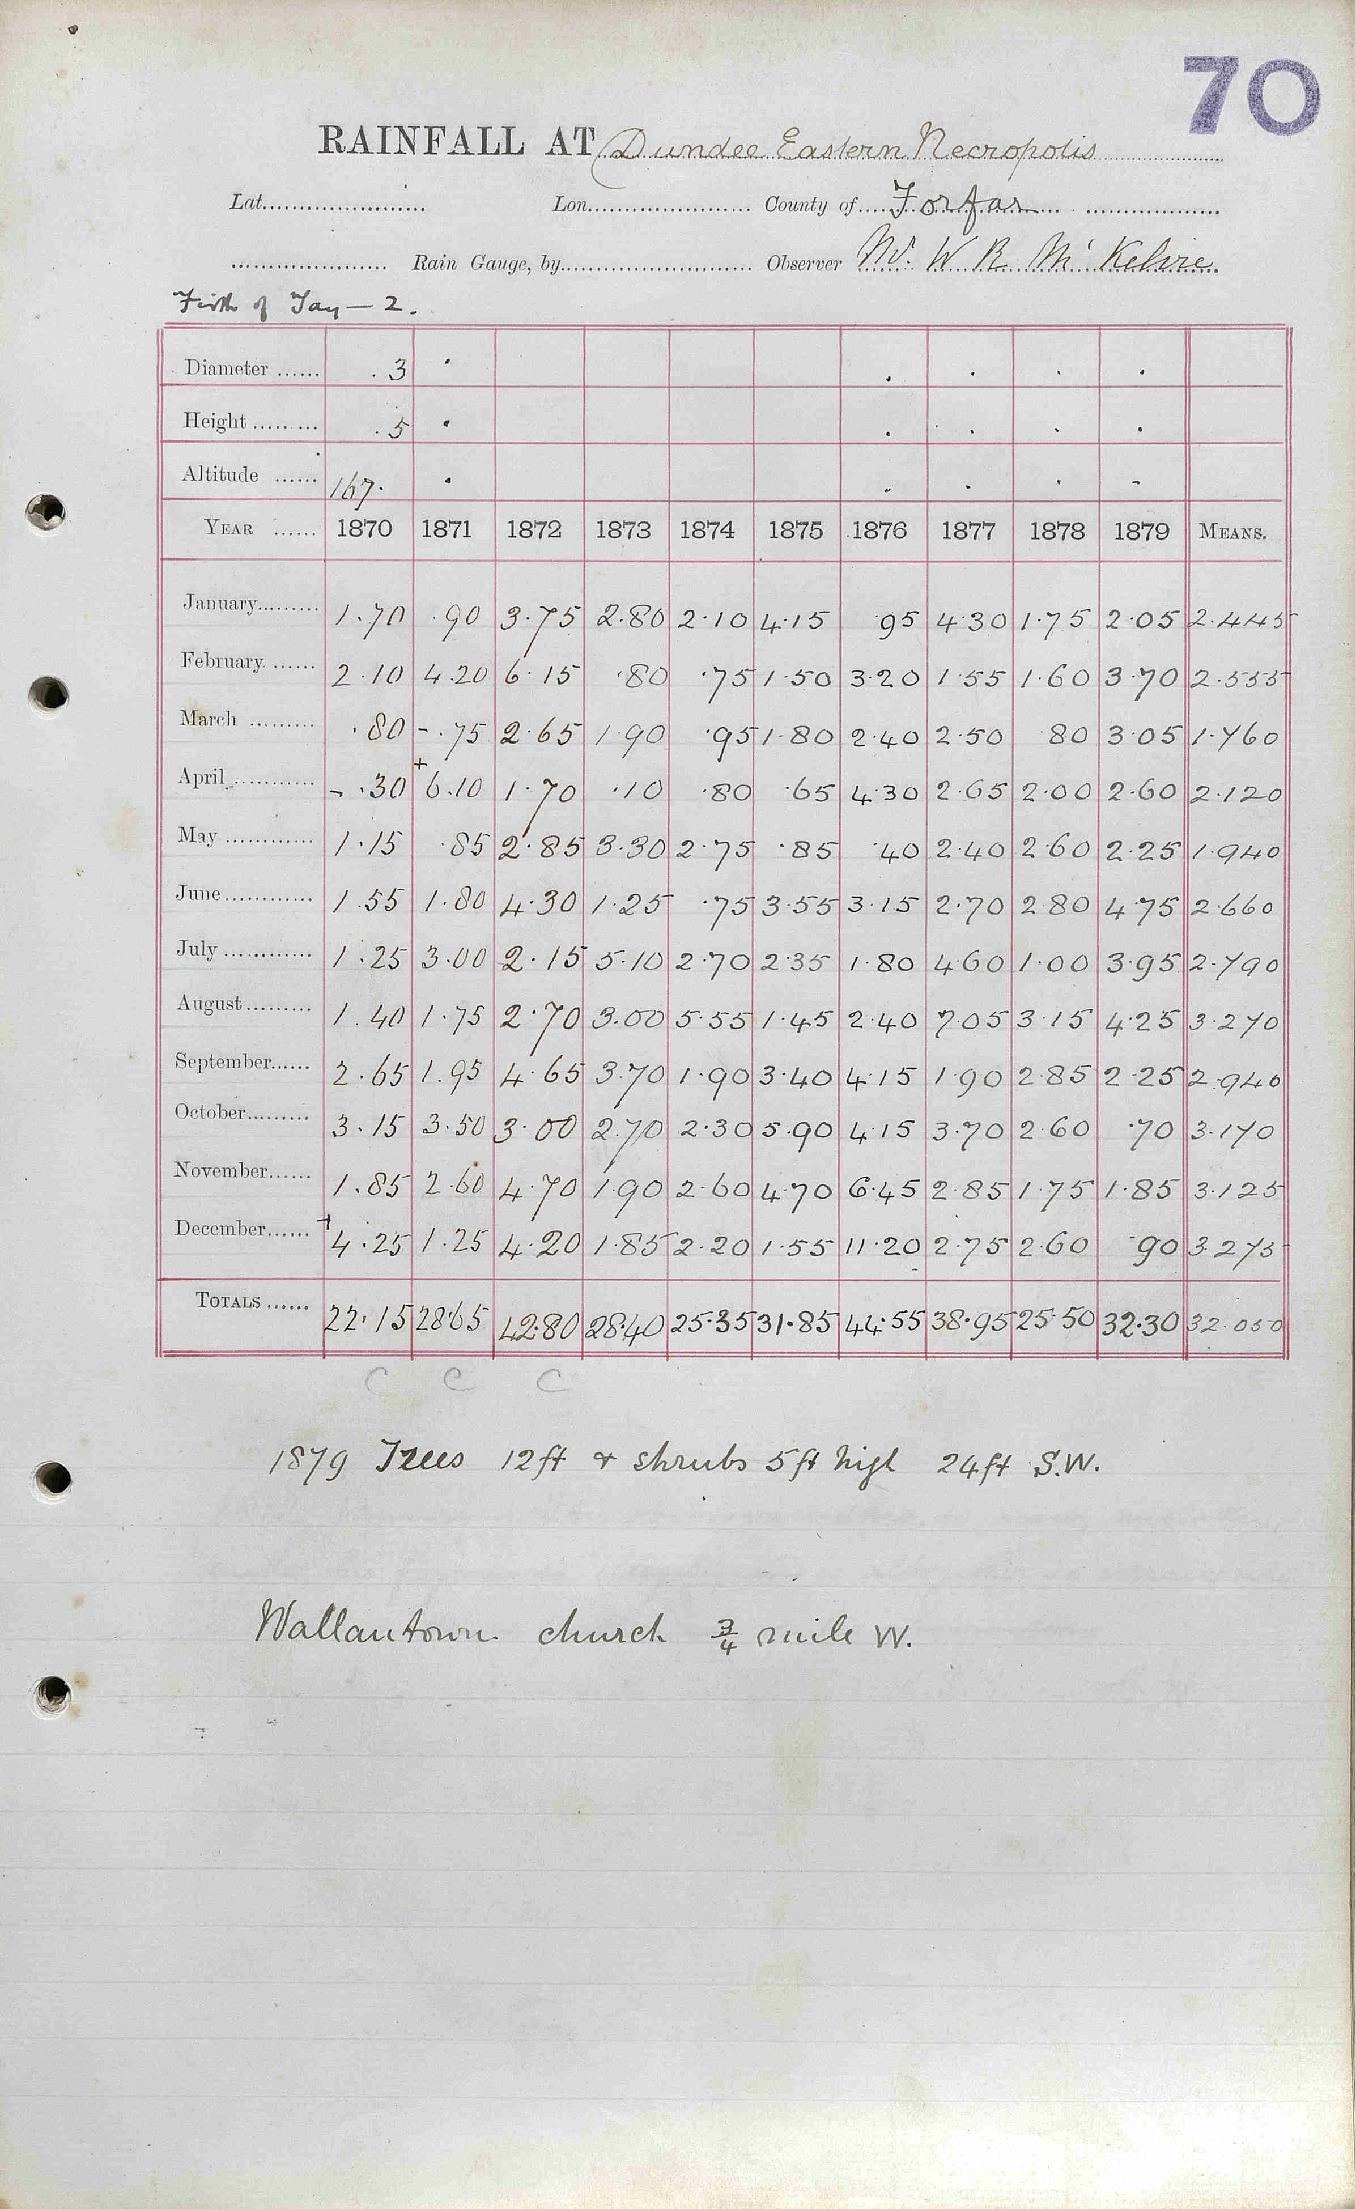 70
RAINFALL AT Dundee Eastern Necropolis
Lat. Lon. County of Forfar
Rain Gauge, by Observer Mr. W R McKelvie
Firth of Tay — 2.
Diameter ...... .3 · · · · ·
Height ......... .5 · · · · ·
Altitude ...... 167. · · · · -
YEAR ...... 1870 1871 1872 1873 1874 1875 1876 1877 1878 1879 MEANS.
January......... 1.70 .90 3.75 2.80 2.10 4.15 .95 4.30 1.75 2.05 2.445
February ...... 2.10 4.20 6.15 .80 .75 1.50 3.20 1.55 1.60 3.70 2.555
March ......... .80 -.75 2.65 1.90 .95 1.80 2.40 2.50 80 3.05 1.760
April............ -.30 +6.10 1.70 .10 .80 .65 4.30 2.65 2.00 2.60 2.120
May ............ 1.15 .85 2.85 3.30 2.75 .85 .40 2.40 2.60 2.25 1.940
June............ 1.55 1.80 4.30 1.25 .75 3.55 3.15 2.70 2.80 4.75 2.660
July ............ 1.25 3.00 2.15 5.10 2.70 2.35 1.80 4.60 1.00 3.95 2.790
August......... 1.40 1.75 2.70 3.00 5.55 1.45 2.40 7.05 3.15 4.25 3.270
September...... 2.65 1.95 4.65 3.70 1.90 3.40 4.15 1.90 2.85 2.25 2.940
October......... 3.15 3.50 3.00 2.70 2.30 5.90 4.15 3.70 2.60 .70 3.170
November...... 1.85 2.60 4.70 1.90 2.60 4.70 6.45 2.85 1.75 1.85 3.125
December...... +4.25 1.25 4.20 1.85 2.20 1.55 11.20 2.75 2.60 .90 3.275
TOTALS ...... 22.15 28.65 42.80 28.40 25.35 31.85 44.55 38.95 25.50 32.30 32.050
C C C
1879 Trees 12ft & shrubs 5ft high 24ft S.W.
Wallantown church 3/4 mile W.